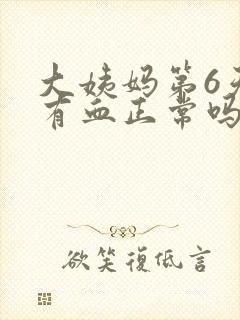 大姨妈第6天
有血正常吗
欲笑復低言